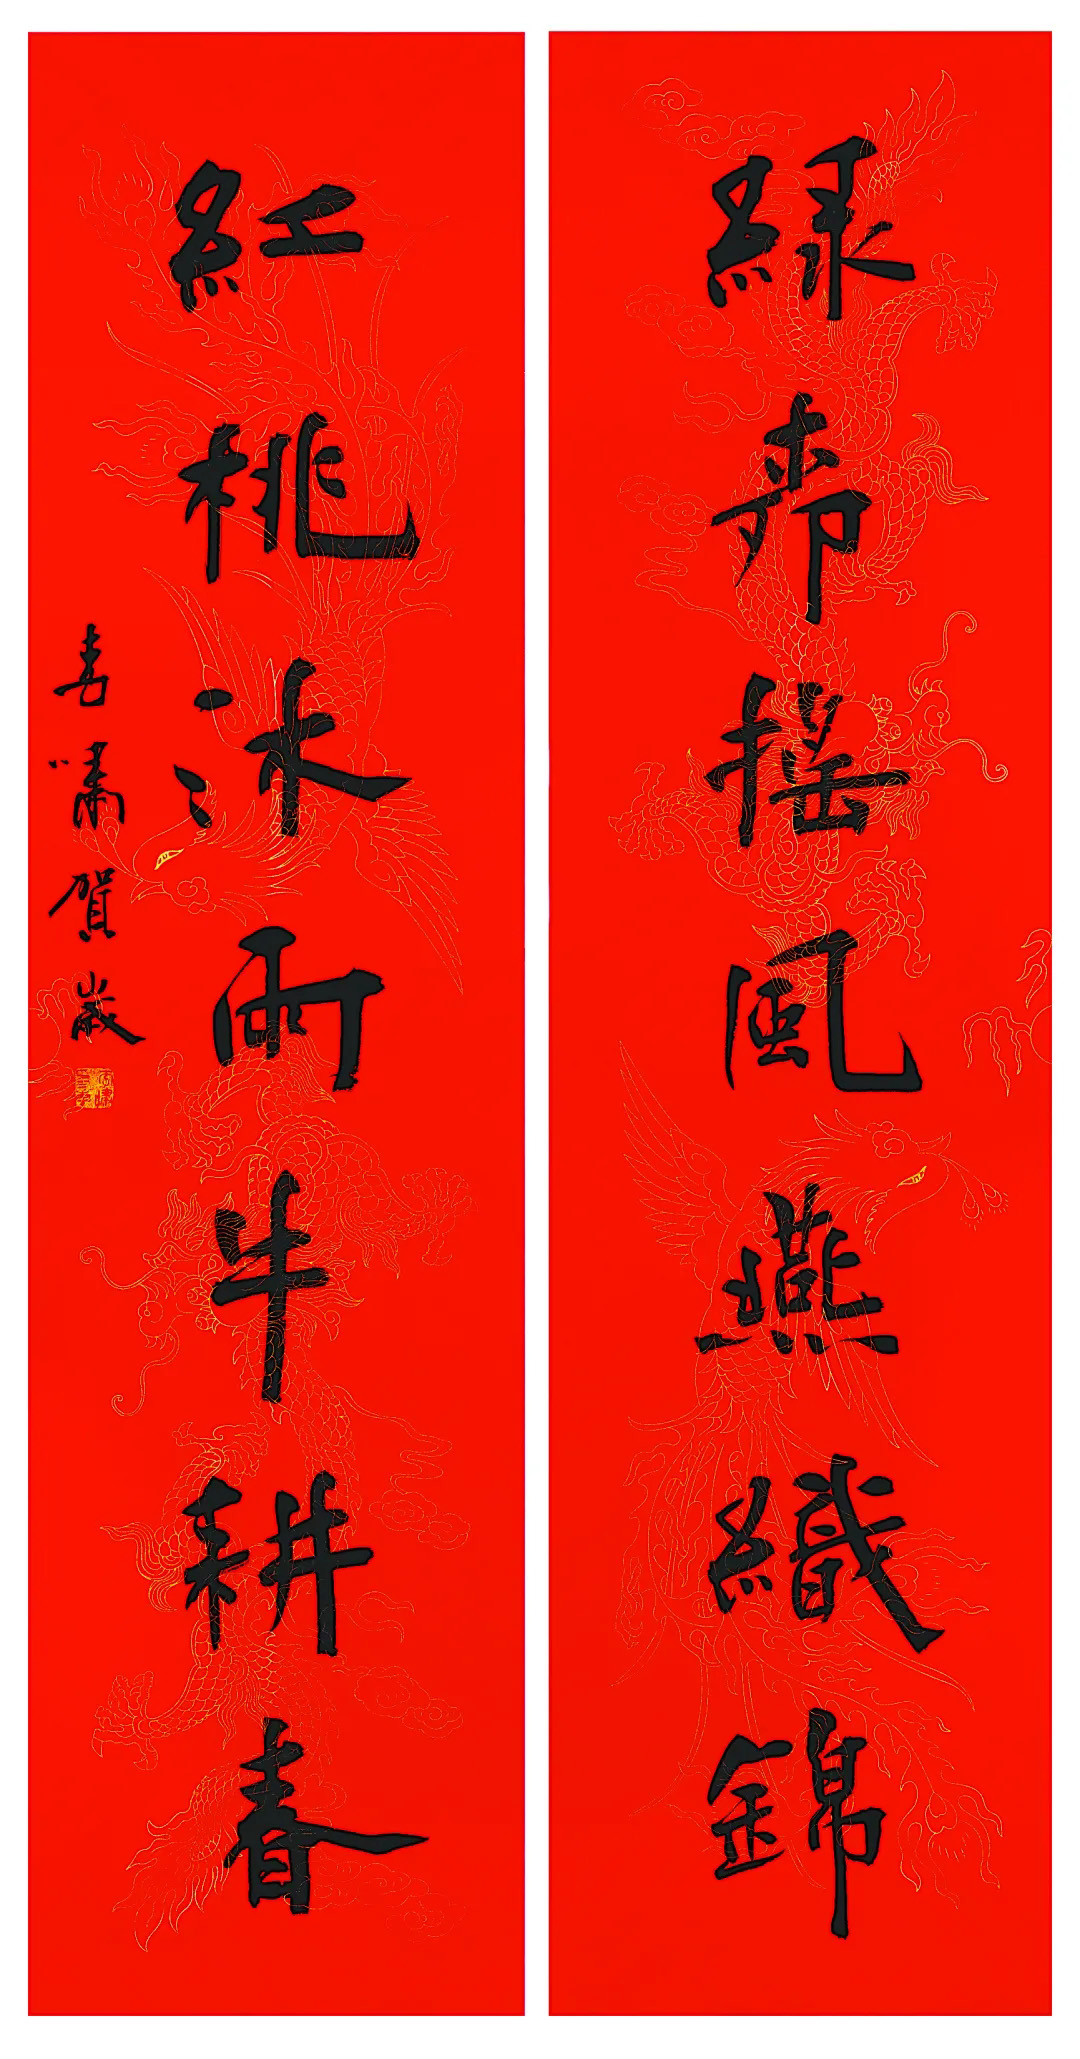 緑柳搖風燕織錦
紅桃沐雨牛耕春
嘯賀歲